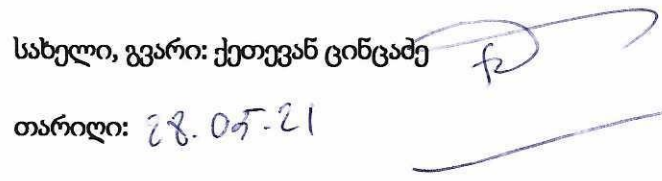 სახელი, გვარი: ქეთევან ცინცაძე
თარიღი: 28.05.21